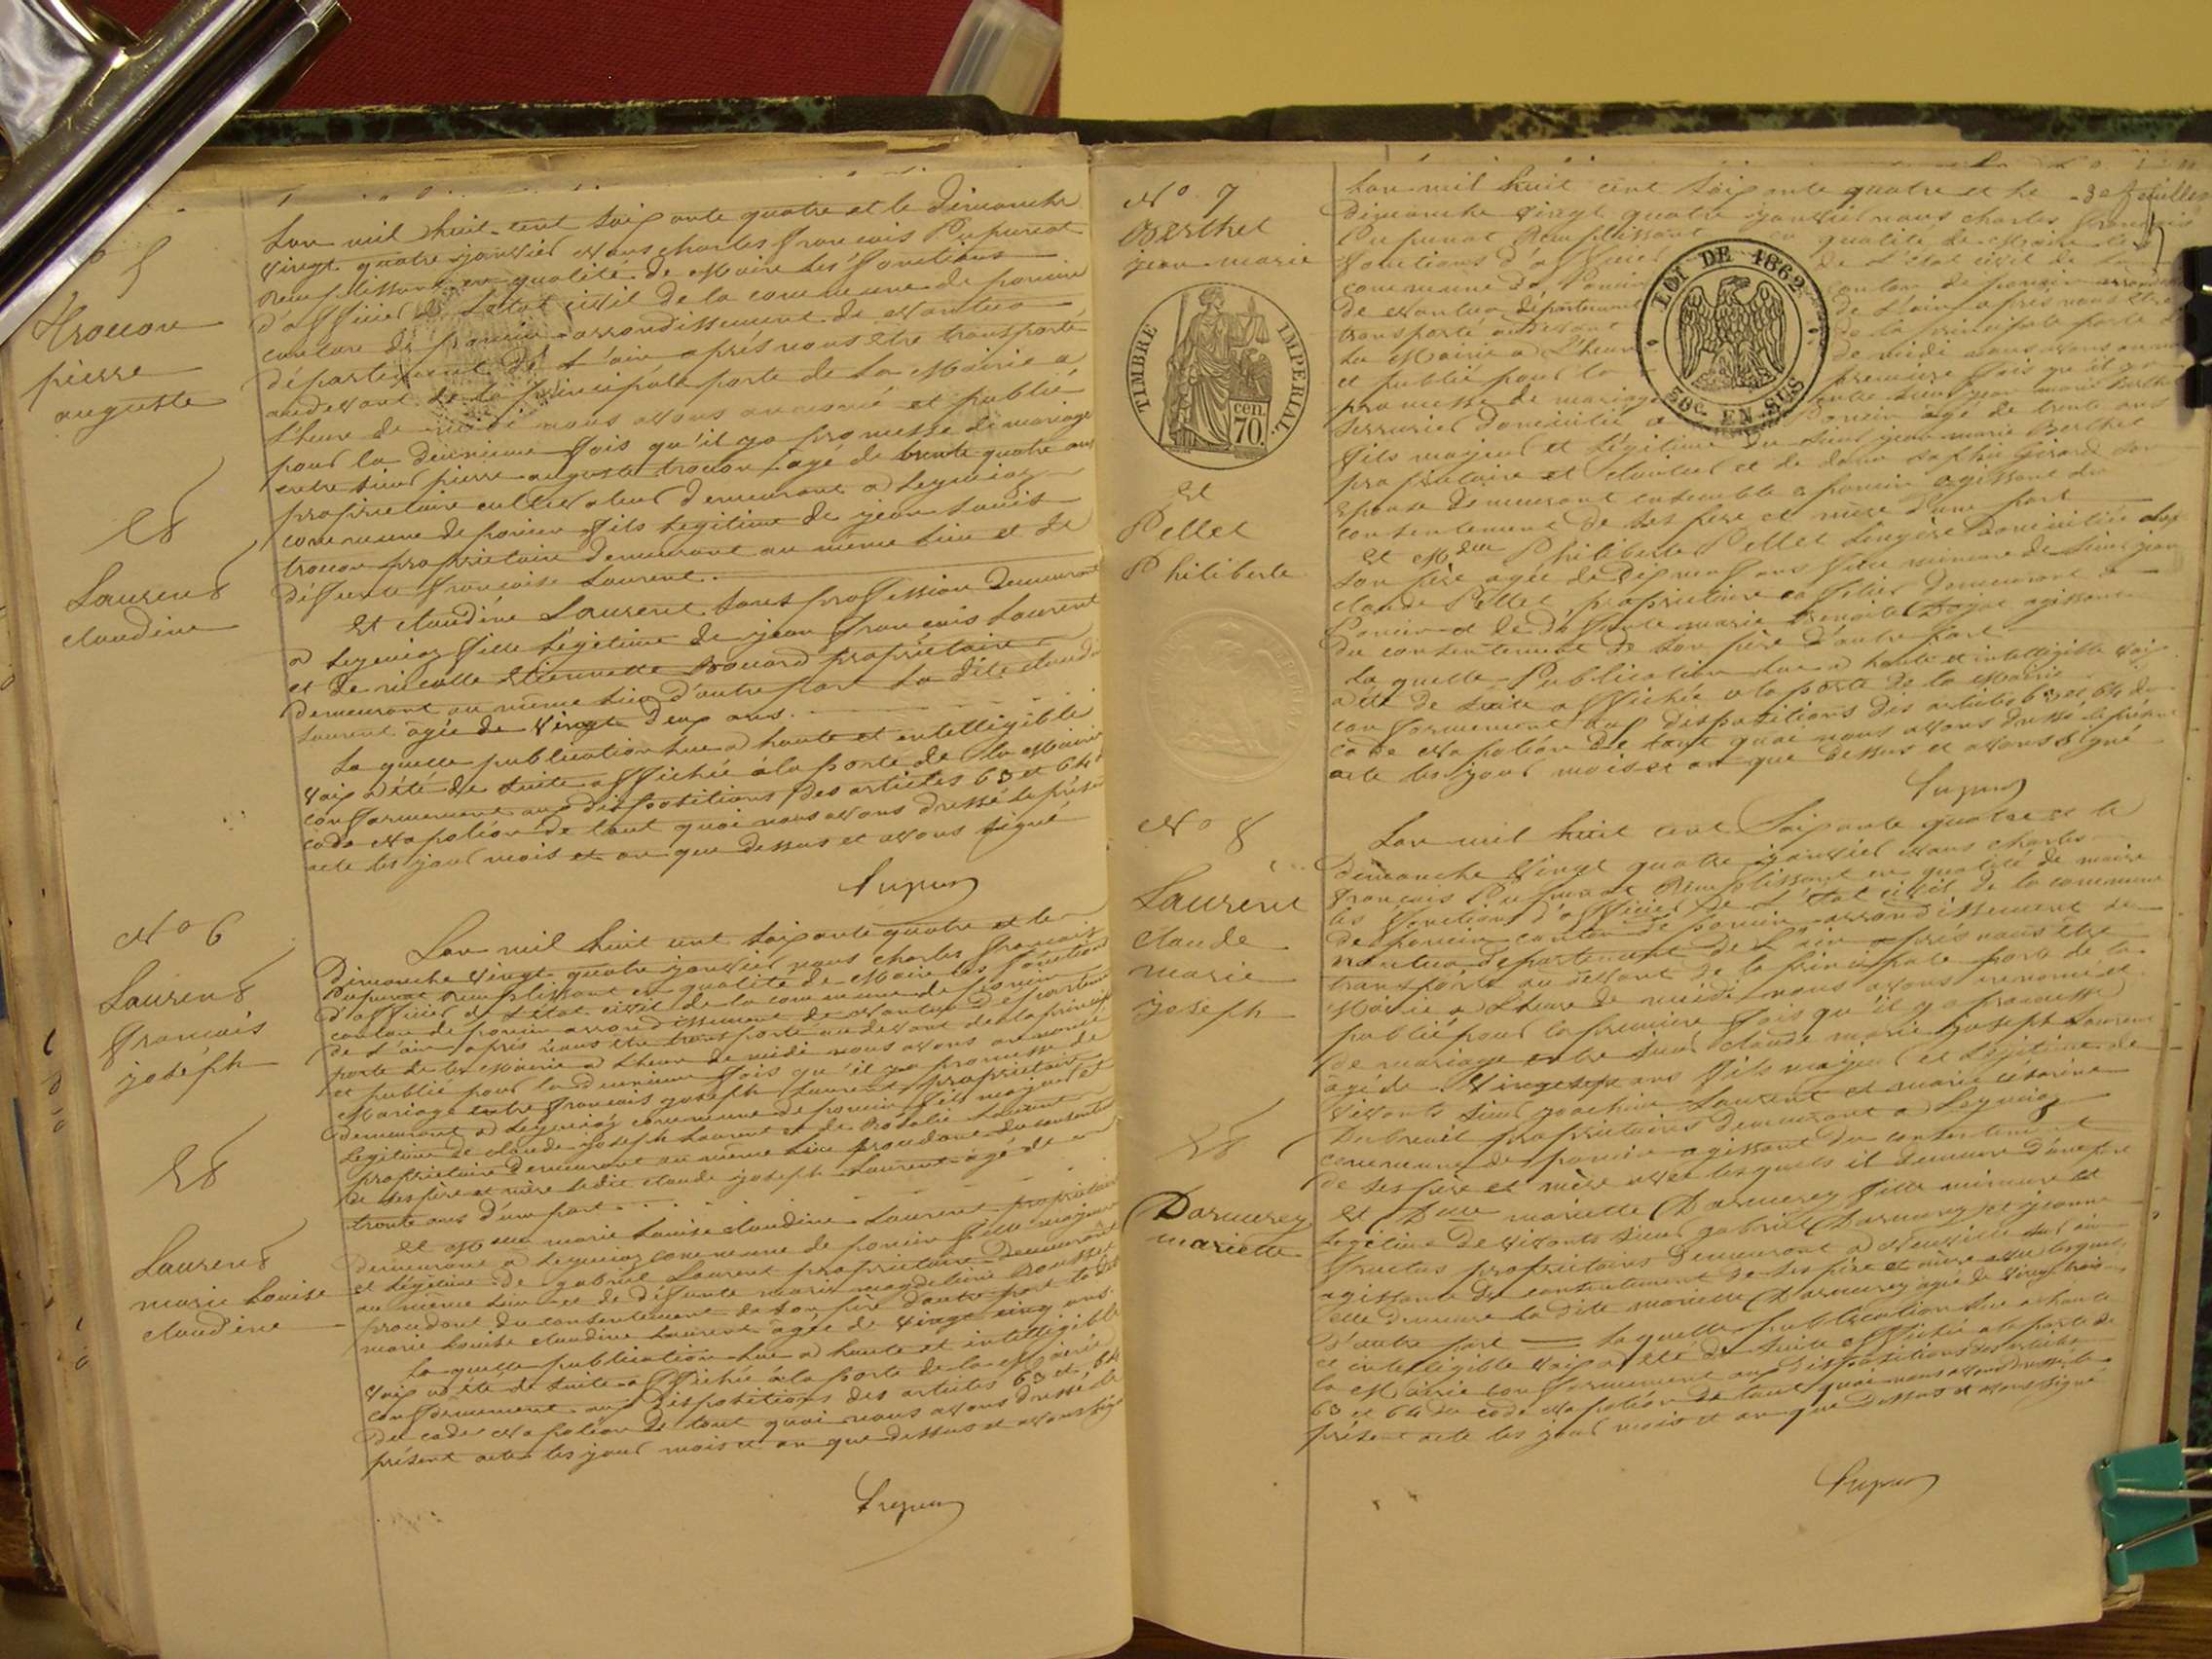 5
Trocon
pierre
auguste
Et
Laurent
claudine
Lan mil huit cent soixante quatre et le Dimanche
vingt quatre janvier nous charles françois
Remplissant en qualité de Maire les fonctions
d'officier de l'état civil de la commune de poncin
canton de poncin arrondissement de nantua
département de l'ain après nous être transporté
audevant de la principale porte de la Mairie a
l'heure de midi nous avons annoncé et publié
pour la deuxieme fois qu'il y a promesse de mariage
entre sieur pierre auguste trocon agé de trente quatre ans
propriétaire cultivateur demeurant a Leymiaz
commune de poncin fils legitime de jean Louis
trocon propriétaire demeurant au même lieu et de
défunte françoise Laurent.
Et claudine Laurent sans profession demeurant
a Leymiaz fille Légitime de jean françois Laurent
et de nicolle etiennette propriétaire
demeurant au même lieu d'autre part La dite claudine
Laurent agée de vingt deux ans.
La quelle publication lue a haute et intelligible
voix a été de suite affichée à la porte de la Mairie
conformement aux dispositions des articles 63 et 64
code napoléon de tout quoi nous avons dressé le présent
acte les jour mois et an que dessus et avons signé
No 6
Laurent
françois
joseph
Et
Laurent
marie Louise
claudine
Lan mil huit cent soixante quatre et le
Dimanche vingt quatre janvier nous charles françois
remplissant en qualité de Maire les fonctions
d'officier de l'état civil de la commune de poncin
canton de poncin arrondissement de nantua Département
de l'ain après nous être transporté au devant de la principale
porte de la Mairie a l'heure de midi nous avons annoncé
et publié pour la deuxieme fois qu'il y a promesse de
Mariage entre françois joseph Laurent propriétaire
demeurant a Leymiaz commune de poncin fils majeur et
Légitime de claude joseph Laurent et de Rosalie Laurent
propriétaire demeurant au même lieu procédant du consentement
de ses père et mère ledit claude joseph Laurent agé de
trente ans d'une part
et Melle marie Louise claudine Laurent propriétaire
demeurant a Leymiaz commune de poncin fille majeure
et Légitime de gabriel Laurent propriétaire demeurant
au même lieu et de défunte marie magdeleine
procédant du consentement de son père d'autre part la dite
marie Louise claudine Laurent agée de vingt cinq ans.
La quelle publication lue a haute et intelligible
voix a été de suite affichée à la porte de la Mairie
conformement aux dispositions des articles 63 et 64
du code napoléon de tout quoi nous avons dressé le
présent acte les jour mois et an que dessus et avons signé
No 7
Berthet
jean marie
TIMBRE IMPERIAL.
cen.
70.
Et
Pellet
Philiberte
LOI DE 1862
50c. EN SUS
3e feuillet
Lan mil huit cent soixante quatre et le
Dimanche vingt quatre janvier nous charles françois
Remplissant en qualité de Maire les
fonctions d'officier de l'état civil de la
commune de Poncin canton de poncin arrondissement
de nantua département de l'ain après nous être
transporté au devant de la principale porte
de la Mairie a l'heure de midi nous avons annoncé
et publié pour la première fois qu'il y a
promesse de mariage entre sieur jean marie Berthet
serrurier domicilié a Poncin agé de trente ans
fils majeur et Légitime du sieur jean marie Berthet
propriétaire et et de dame sophie girard son
Epouse demeurant ensemble a poncin agissant du
consentement de ses père et mère d'une part
Et Mdelle Philiberte Pellet Lingère domiciliée chez
son père agée de dix neuf ans fille mineure de sieur jean
claude Pellet, propriétaire demeurant a
Poncin et de défunte marie Benoite agissant
du consentement de son père d'autre part.
La quelle Publication lue a haute et intelligible voix
a été de suite affichée a la porte de la Mairie
conformement aux dispositions des articles 63 et 64 du
code napoléon De tout quoi nous avons dressé le présent
acte les jour mois et an que dessus et avons signé
No 8
Laurent
claude
marie
joseph
Et
Darmerey
mariette
Lan mil huit cent soixante quatre et le
Dimanche vingt quatre janvier nous charles
françois Remplissant en qualité de maire
les fonctions d'officier de l'état civil de la commune
de poncin canton de poncin arrondissement de
nantua département de l'ain après nous être
transporté au devant de la principale porte de la
Mairie a l'heure de midi nous avons annoncé et
publié pour la première fois qu'il y a promesse
de mariage entre sieur claude marie joseph Laurent
agé de vingt sept ans fils majeur et Légitime de
vivants sieur joachim Laurent et marie césarine
Dubreuil propriétaires demeurant a Leymiaz
commune de poncin agissant du consentement
de ses père et mère avec lesquels il demeure d'une part
Et Delle mariette Darmerey fille mineure et
Légitime de vivants sieur gabriel Darmerey et jeanne
propriétaires demeurant a neuville sur ain
agissant du consentement de ses père et mère avec lesquels
elle demeure la dite mariette Darmerey agée de vingt trois
d'autre part — La quelle publication lue a haute
et intelligible voix a été de suite affichée a la porte de
la Mairie conformement aux dispositions des articles
63 et 64 du code napoléon de tout quoi nous avons dressé le
présent acte les jour mois et an que dessus et avons signé